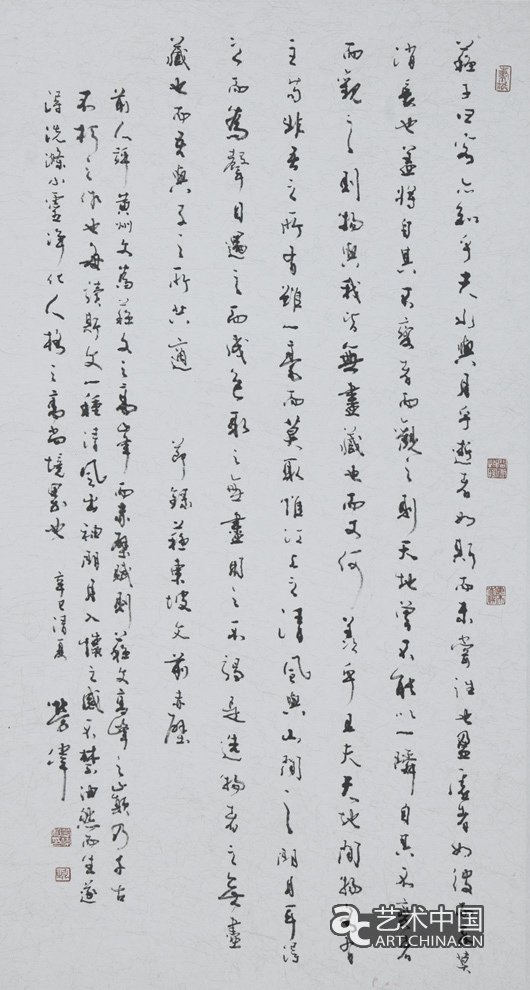 蘇子曰客亦知乎夫水與月乎逝者如斯而未嘗往也盈虛者如彼而卒莫
消長也蓋將自其不變者而觀之則天地曾不能以一瞬自其不變者
而觀之則物與我皆無盡藏也而又何羨乎且夫天地間物各有
主苟非吾之所有雖一毫而莫取惟江上之清風與山間之明月耳得
之而為聲目遇之而成色取之無盡用之不竭是造物者之無盡
藏也而吾與子之所共適 節錄蘇東坡文前赤壁
前人評黃州文為蘇文之高峯而赤壁賦則蘇文高峰之巔乃千古
不朽之作也每讀斯文一種清風出袖明月入懷之感不禁油然而生遂
得洗滌心靈淨化人格之高尚境界也 辛巳清夏
艺术中国
ART.CHINA.CN